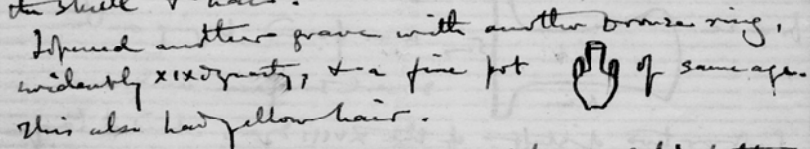 the skull & hair.
I opened another grave with another bronze ring,
evidently XIX dynasty, & a fine pot of same age.
This also had yellow hair.